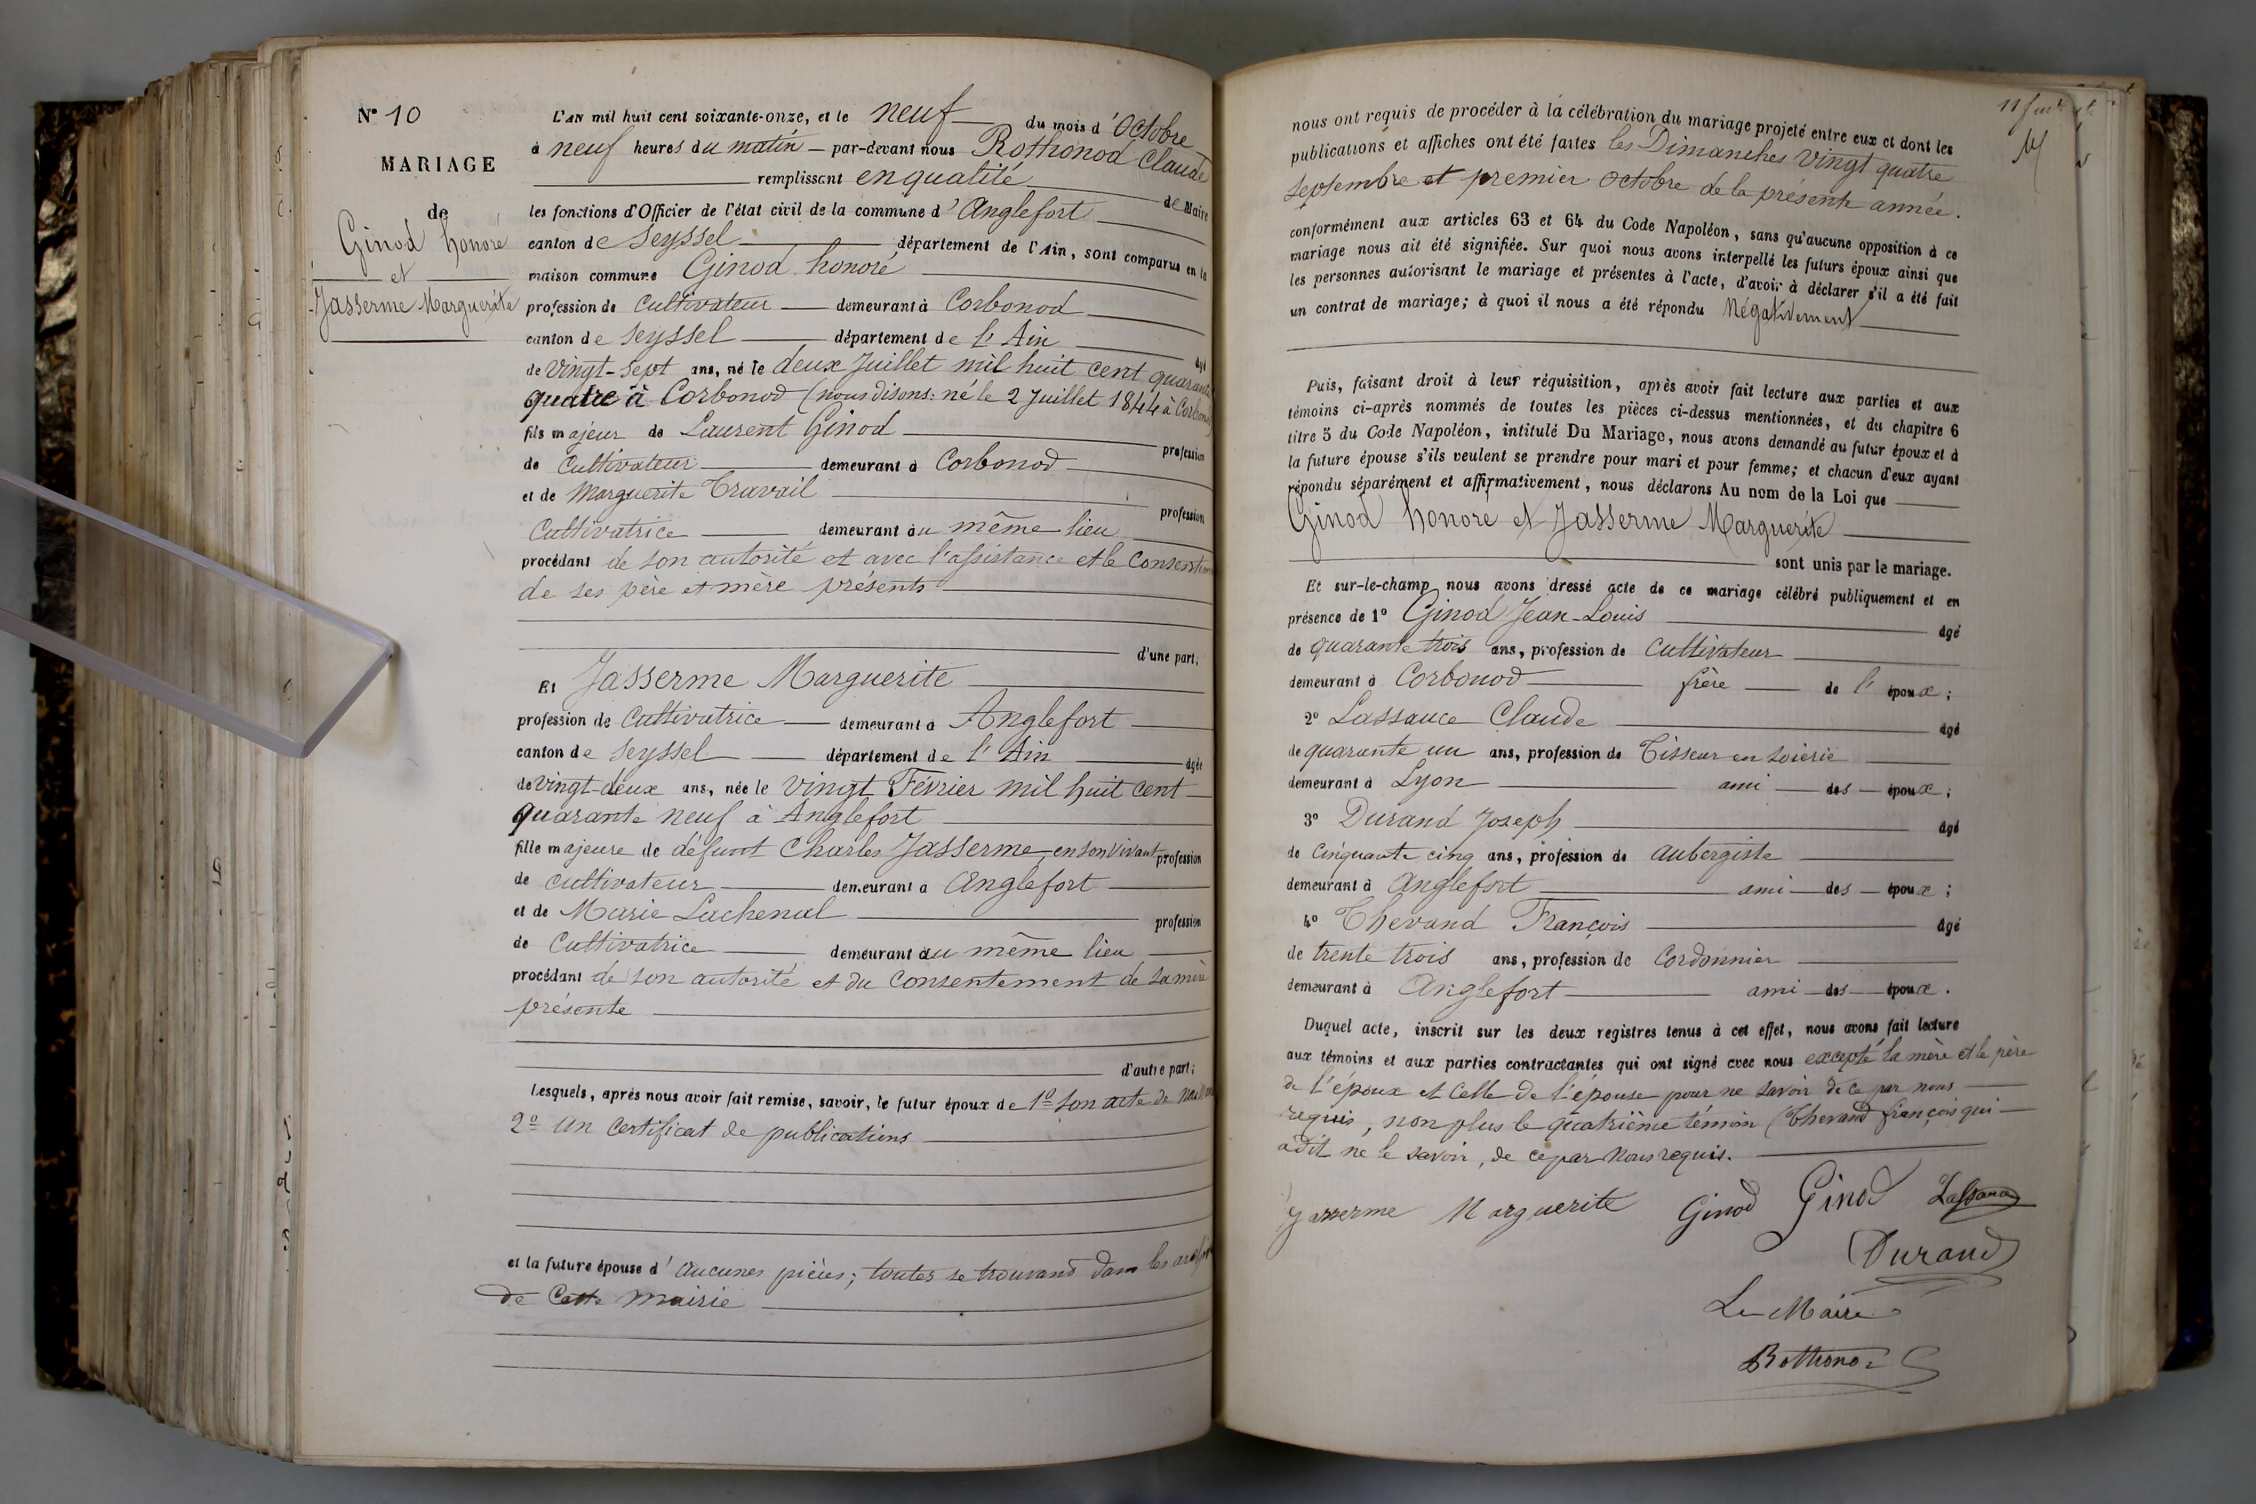 N° 10
MARIAGE
de
Ginod honoré
et
Jasserme Marguerite
L'AN mil huit cent soixante-onze, et le neuf du mois d'Octobre
à neuf heures du matin par-devant nous Rothonod Claude
remplissant en qualité de Maire
les fonctions d'Officier de l'état civil de la commune d'Anglefort
canton de Seyssel département de l'Ain, sont comparus en la
maison commune Ginod honoré
profession de Cultivateur demeurant à Corbonod
canton de Seyssel département de l'Ain âgé
de vingt-sept ans, né le deux Juillet mil huit cent quarante
quatre à Corbonod (nous disons: né le 2 Juillet 1844 à Corbonod)
fils majeur de Laurent Ginod profession
de Cultivateur demeurant à Corbonod
et de Marguerite Travail profession
Cultivatrice demeurant au même lieu
procédant de son autorité et avec l'assistance et le Consentement
de ses père et mère présents
d'une part;
Et Jasserme Marguerite
profession de Cultivatrice demeurant à Anglefort
canton de Seyssel département de l'Ain âgée
de vingt-deux ans, née le vingt Février mil huit cent
quarante neuf à Anglefort
fille majeure de défunt Charles Jasserme, en son vivant profession
de cultivateur demeurant à Anglefort
et de Marie Lachenal profession
de Cultivatrice demeurant au même lieu
procédant de son autorité et du Consentement de sa mère
présente
d'autre part;
Lesquels, après nous avoir fait remise, savoir, le futur époux de 1° son acte de
2° un Certificat de publications
et la future épouse d'aucunes pièces; toutes se trouvant dans les
de Cette mairie
nous ont requis de procéder à la célébration du mariage projeté entre eux et dont les
publications et affiches ont été faites les Dimanches vingt quatre
Septembre et premier Octobre de la présente année.
conformément aux articles 63 et 64 du Code Napoléon, sans qu'aucune opposition à ce
mariage nous ait été signifiée. Sur quoi nous avons interpellé les futurs époux ainsi que
les personnes autorisant le mariage et présentes à l'acte, d'avoir à déclarer s'il a été fait
un contrat de mariage; à quoi il nous a été répondu Négativement
Puis, faisant droit à leur réquisition, après avoir fait lecture aux parties et aux
témoins ci-après nommés de toutes les pièces ci-dessus mentionnées, et du chapitre 6
titre 5 du Code Napoléon, intitulé Du Mariage, nous avons demandé au futur époux et à
la future épouse s'ils veulent se prendre pour mari et pour femme; et chacun d'eux ayant
répondu séparément et affirmativement, nous déclarons Au nom de la Loi que
Ginod honoré et Jasserme Marguerite
sont unis par le mariage.
Et sur-le-champ nous avons dressé acte de ce mariage célébré publiquement et en
présence de 1° Ginod Jean-Louis âgé
de quarante trois ans, profession de Cultivateur
demeurant à Corbonod frère de l'époux;
2° Lassauce Claude âgé
de quarante un ans, profession de Tisseur en soierie
demeurant à Lyon ami des époux;
3° Durand Joseph âgé
de Cinquante cinq ans, profession de aubergiste
demeurant à Anglefort ami des époux;
4° Thevand François âgé
de trente trois ans, profession de Cordonnier
demeurant à Anglefort ami des époux.
Duquel acte, inscrit sur les deux registres tenus à cet effet, nous avons fait lecture
aux témoins et aux parties contractantes qui ont signé avec nous excepté la mère et le père
de l'époux et Celle de l'épouse pour ne savoir de ce par nous
requis, non plus le quatrième témoin Thevand françois qui
a dit ne le savoir, de ce par nous requis.
Jasserme Marguerite Ginod Ginod Lassauce
Durand
Le Maire
Rothonod